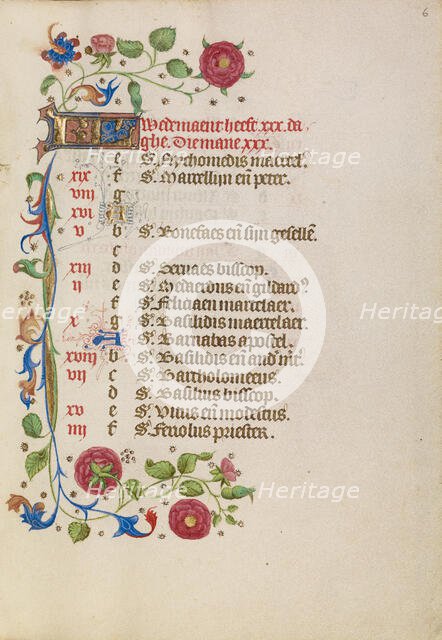 6
Wedmaent heeft xxx. da
ghe. Die mane xxx.
e Sͭ. Nychomedis mertel.
xix f Sͭ. Marcellijn en̄ peter.
viii g
xvi A
v b Sͭ. Bonefaes en̄ sijn gesellē.
c
xiii d Sͭ. Seruaes bisscop.
ii e Sͭ. Medardus en̄ gildard᷒.
f Sͭ. Feliciaen martelaer.
x g Sͭ. Basilidis maertelaer.
A Sͭ. Barnabas apostel.
xviii b Sͭ. Basilidis en̄
vii c Sͭ. Bartholomeus.
d Sͭ. Basilius bisscop.
xv e Sͭ. Vitus en̄ modestus.
iiii f Sͭ. Feriolus priester.
Heritage Heritage Heritage
Heritage Heritage Heritage
Heritage Heritage